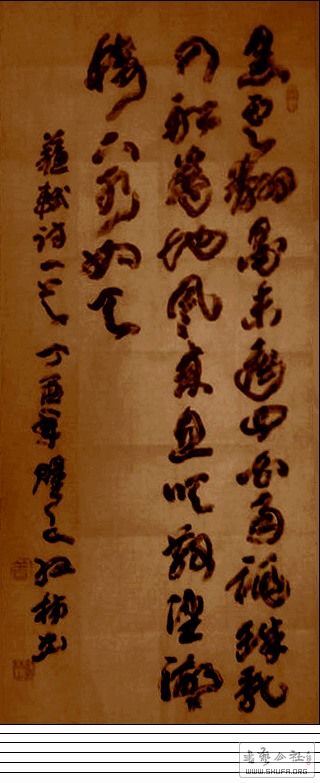 黑云翻墨未遮山白雨跳珠乱
入船卷地風来忽吹散望湖
樓下水如天
蘇軾诗一首 丁酉年
书艺公社
WWW.SHUFA.ORG